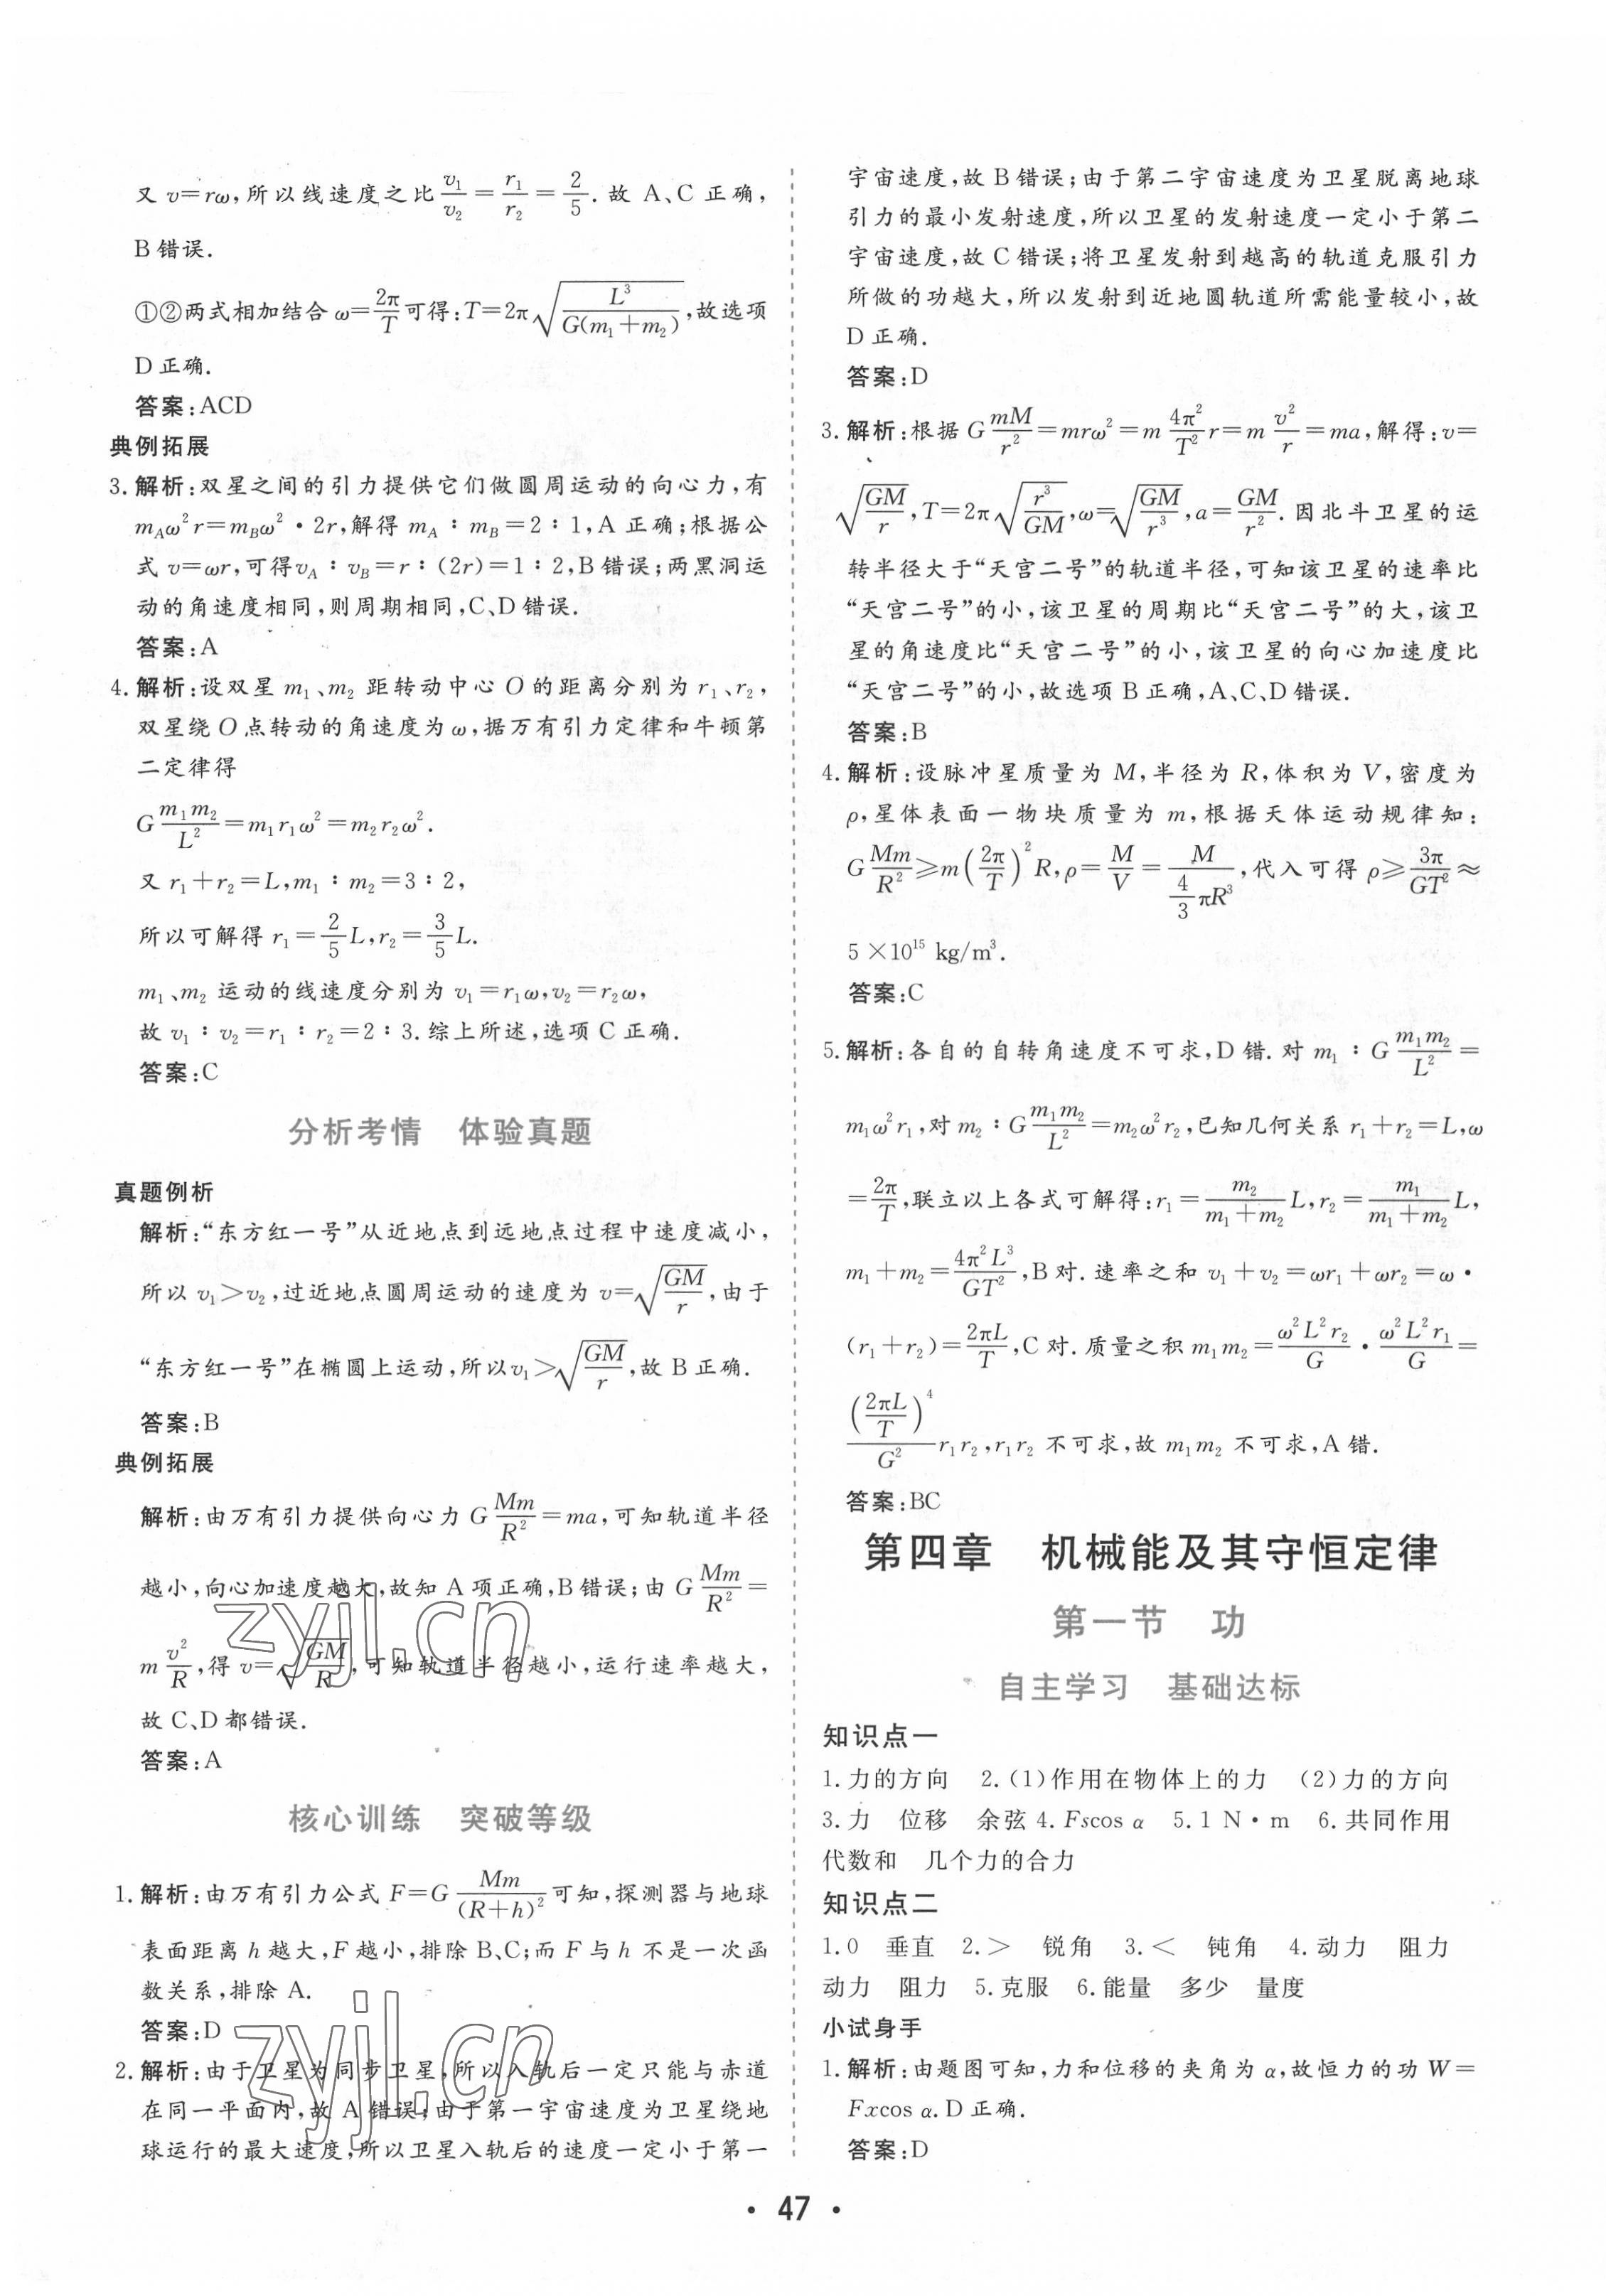 又 v=rω,所以线速度之比 v₁/v₂ = r₁/r₂ = 2/5. 故 A、C 正确,
B 错误.
①②两式相加结合 ω=2π/T 可得:T=2π√(L³/(G(m₁+m₂))),故选项
D 正确.
答案:ACD
典例拓展
3. 解析:双星之间的引力提供它们做圆周运动的向心力,有
m_Aω²r=m_Bω²·2r,解得 m_A∶m_B=2∶1,A 正确;根据公
式 v=ωr,可得v_A∶v_B=r∶(2r)=1∶2,B错误;两黑洞运
动的角速度相同,则周期相同,C、D错误.
答案:A
4. 解析:设双星 m₁、m₂ 距转动中心 O 的距离分别为 r₁、r₂,
双星绕 O 点转动的角速度为 ω,据万有引力定律和牛顿第
二定律得
G m₁m₂/L²=m₁r₁ω²=m₂r₂ω².
又 r₁+r₂=L,m₁∶m₂=3∶2,
所以可解得 r₁=2/5 L,r₂=3/5 L.
m₁、m₂ 运动的线速度分别为 v₁=r₁ω,v₂=r₂ω,
故 v₁∶v₂=r₁∶r₂=2∶3. 综上所述,选项 C 正确.
答案:C
分析考情 体验真题
真题例析
解析:“东方红一号”从近地点到远地点过程中速度减小,
所以 v₁>v₂,过近地点圆周运动的速度为 v=√(GM/r),由于
“东方红一号”在椭圆上运动,所以v₁>√(GM/r),故 B 正确.
答案:B
典例拓展
解析:由万有引力提供向心力 G Mm/R²=ma,可知轨道半径
越小,向心加速度越大,故知 A 项正确,B错误;由 G Mm/R²=
m v²/R,得 v=√(GM/R),可知轨道半径越小,运行速率越大,
故 C、D都错误.
答案:A
核心训练 突破等级
1. 解析:由万有引力公式 F=G Mm/(R+h)² 可知,探测器与地球
表面距离 h 越大,F 越小,排除 B、C;而 F 与 h 不是一次函
数关系,排除 A.
答案:D
2. 解析:由于卫星为同步卫星,所以入轨后一定只能与赤道
在同一平面内,故 A 错误;由于第一宇宙速度为卫星绕地
球运行的最大速度,所以卫星入轨后的速度一定小于第一
宇宙速度,故 B 错误;由于第二宇宙速度为卫星脱离地球
引力的最小发射速度,所以卫星的发射速度一定小于第二
宇宙速度,故 C 错误;将卫星发射到越高的轨道克服引力
所做的功越大,所以发射到近地圆轨道所需能量较小,故
D 正确.
答案:D
3. 解析:根据 G mM/r²=mrω²=m 4π²/T² r=m v²/r=ma,解得:v=
√(GM/r),T=2π√(r³/GM),ω=√(GM/r³),a=GM/r². 因北斗卫星的运
转半径大于“天宫二号”的轨道半径,可知该卫星的速率比
“天宫二号”的小,该卫星的周期比“天宫二号”的大,该卫
星的角速度比“天宫二号”的小,该卫星的向心加速度比
“天宫二号”的小,故选项 B 正确,A、C、D 错误.
答案:B
4. 解析:设脉冲星质量为 M,半径为 R,体积为 V,密度为
ρ,星体表面一物块质量为 m,根据天体运动规律知:
G Mm/R²≥m(2π/T)²R,ρ=M/V=M/(4/3 πR³),代入可得 ρ≥3π/GT²≈
5×10¹⁵ kg/m³.
答案:C
5. 解析:各自的自转角速度不可求,D 错. 对 m₁∶G m₁m₂/L²=
m₁ω²r₁,对 m₂∶G m₁m₂/L²=m₂ω²r₂,已知几何关系 r₁+r₂=L,ω
=2π/T,联立以上各式可解得:r₁=m₂/(m₁+m₂) L,r₂=m₁/(m₁+m₂) L,
m₁+m₂=4π²L³/GT²,B对. 速率之和 v₁+v₂=ωr₁+ωr₂=ω·
(r₁+r₂)=2πL/T,C 对. 质量之积 m₁m₂=ω²L²r₂/G·ω²L²r₁/G=
(2πL/T)⁴/G² r₁r₂,r₁r₂ 不可求,故 m₁m₂ 不可求,A 错.
答案:BC
第四章 机械能及其守恒定律
第一节 功
自主学习 基础达标
知识点一
1. 力的方向 2. (1)作用在物体上的力 (2)力的方向
3. 力 位移 余弦 4. Fscos α 5. 1 N·m 6. 共同作用
代数和 几个力的合力
知识点二
1. 0 垂直 2. > 锐角 3. < 钝角 4. 动力 阻力
动力 阻力 5. 克服 6. 能量 多少 量度
小试身手
1. 解析:由题图可知,力和位移的夹角为 α,故恒力的功 W=
Fxcos α. D 正确.
答案:D
zyjl.cn
zyjl.cn
· 47 ·